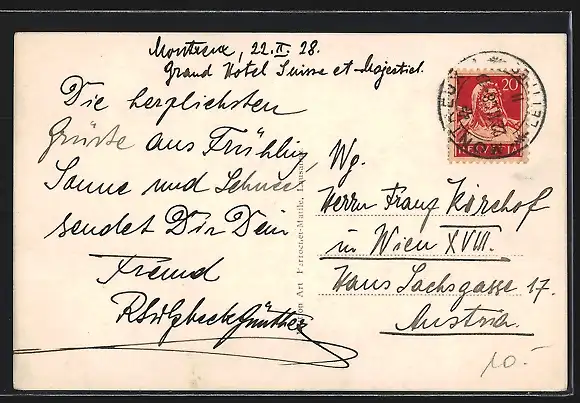 Montreux, 22.II.28.
Grand Hotel Suisse et Majestic.
Die herzlichsten
Grüsse aus Frühling,
Sonne und Schnee
sendet Dir Dein
Freund
Günther
Wg.
Herrn Franz Kirchhof
in Wien XVIII.
Hans Sachsgasse 17.
Austria.
10.-
20
HELVETIA
Art Perrochet-Matile, Lausanne